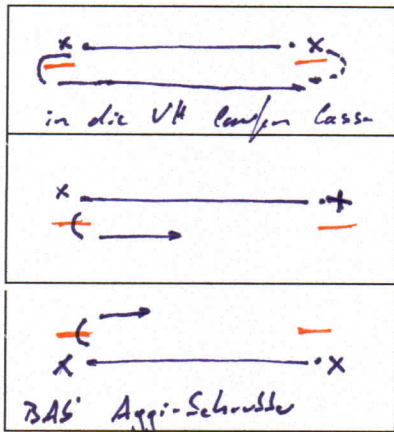 in die VH laufen lassen
BAS Aggi-Schrubber